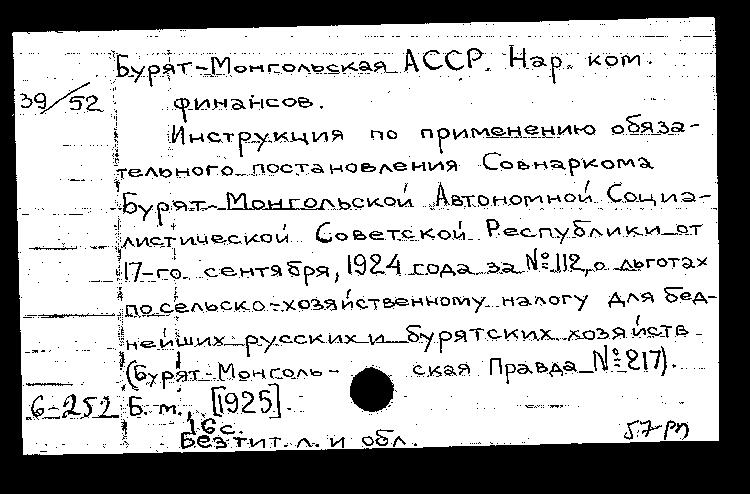 Бурят-Монгольская АССР. Нар. ком.
39/52
финансов.
Инструкция по применению обяза-
тельного постановления Совнаркома
Бурят-Монгольской Автономной Социа-
листической Советской Республики от
17-го сентября, 1924 года за №112, о льготах
по сельско-хозяйственному налогу для бед-
нейших русских и бурятских хозяйств
(Бурят-Монголь- ская Правда №217).
6-252 Б. м., [1925].
16 с.
Без тит. л. и обл.
57-рп